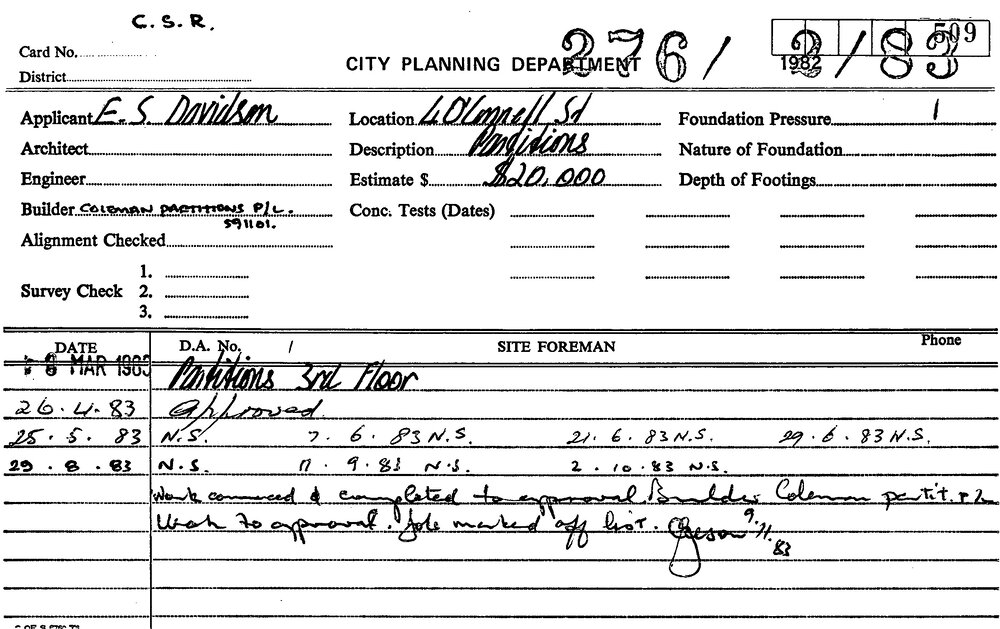 C.S.R.
Card No.
276/ 2/83 509
CITY PLANNING DEPARTMENT 1982
District
Applicant E. S. Davidson Location 4 O'Connell St Foundation Pressure 1
Architect Description Partitions Nature of Foundation
Engineer Estimate $ $20,000 Depth of Footings
Builder COLEMAN PARTITIONS P/L. Conc. Tests (Dates)
591101.
Alignment Checked
1.
Survey Check 2.
3.
DATE D.A. No. / SITE FOREMAN Phone
8 MAR 1983 Partitions 3rd Floor
26.4.83 Approved
25.5.83 N.S. 7.6.83 N.S. 21.6.83 N.S. 29.6.83 N.S.
29.8.83 N.S. 9.83 N.S. 2.10.83 N.S.
Work commced & completed to approval Builder Coleman partit.
Work to approval. Job marked off list. 9.11.83